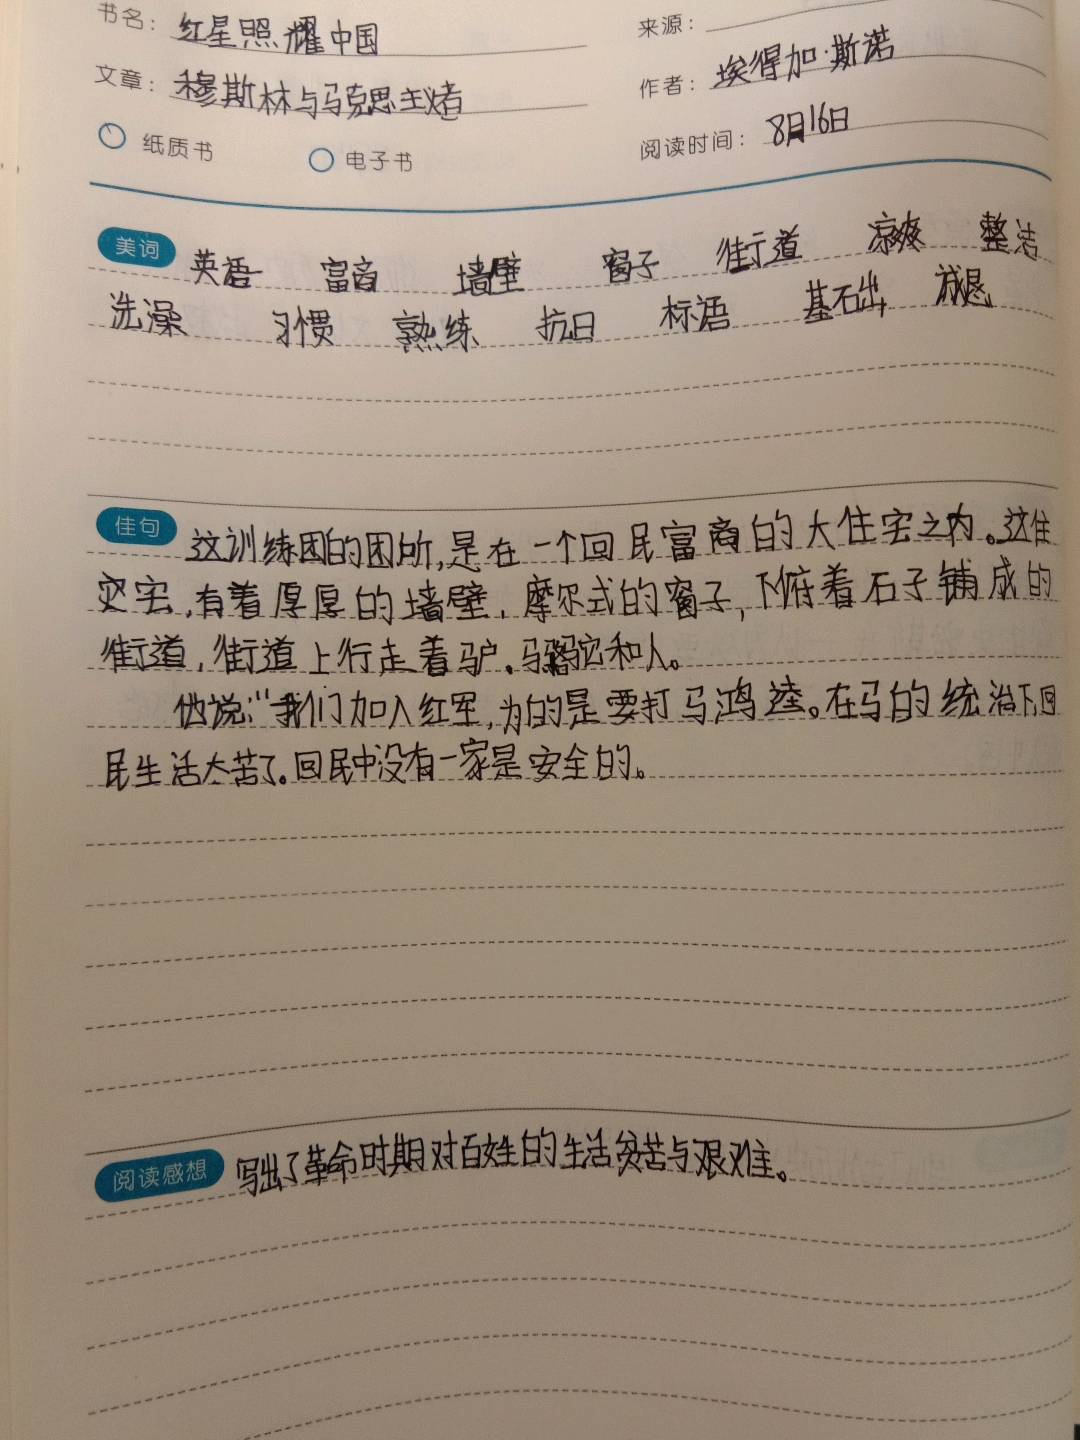 书名：红星照耀中国
来源：
文章：穆斯林与马克思主义者
作者：埃得加·斯诺
纸质书 电子书
阅读时间：8月16日
美词 英语 富商 墙壁 窗子 街道 凉爽 整洁
洗澡 习惯 熟练 抗日 标语 基础 减退
佳句 这训练团的团所,是在一个回民富商的大住宅之内。这住
宅,有着厚厚的墙壁,摩尔式的窗子,下俯着石子铺成的
街道,街道上行走着驴、马骆驼和人。
他说:“我们加入红军,为的是要打马鸿逵。在马的统治下,回
民生活太苦了。回民中没有一家是安全的。
阅读感想 写出了革命时期对百姓的生活贫苦与艰难。